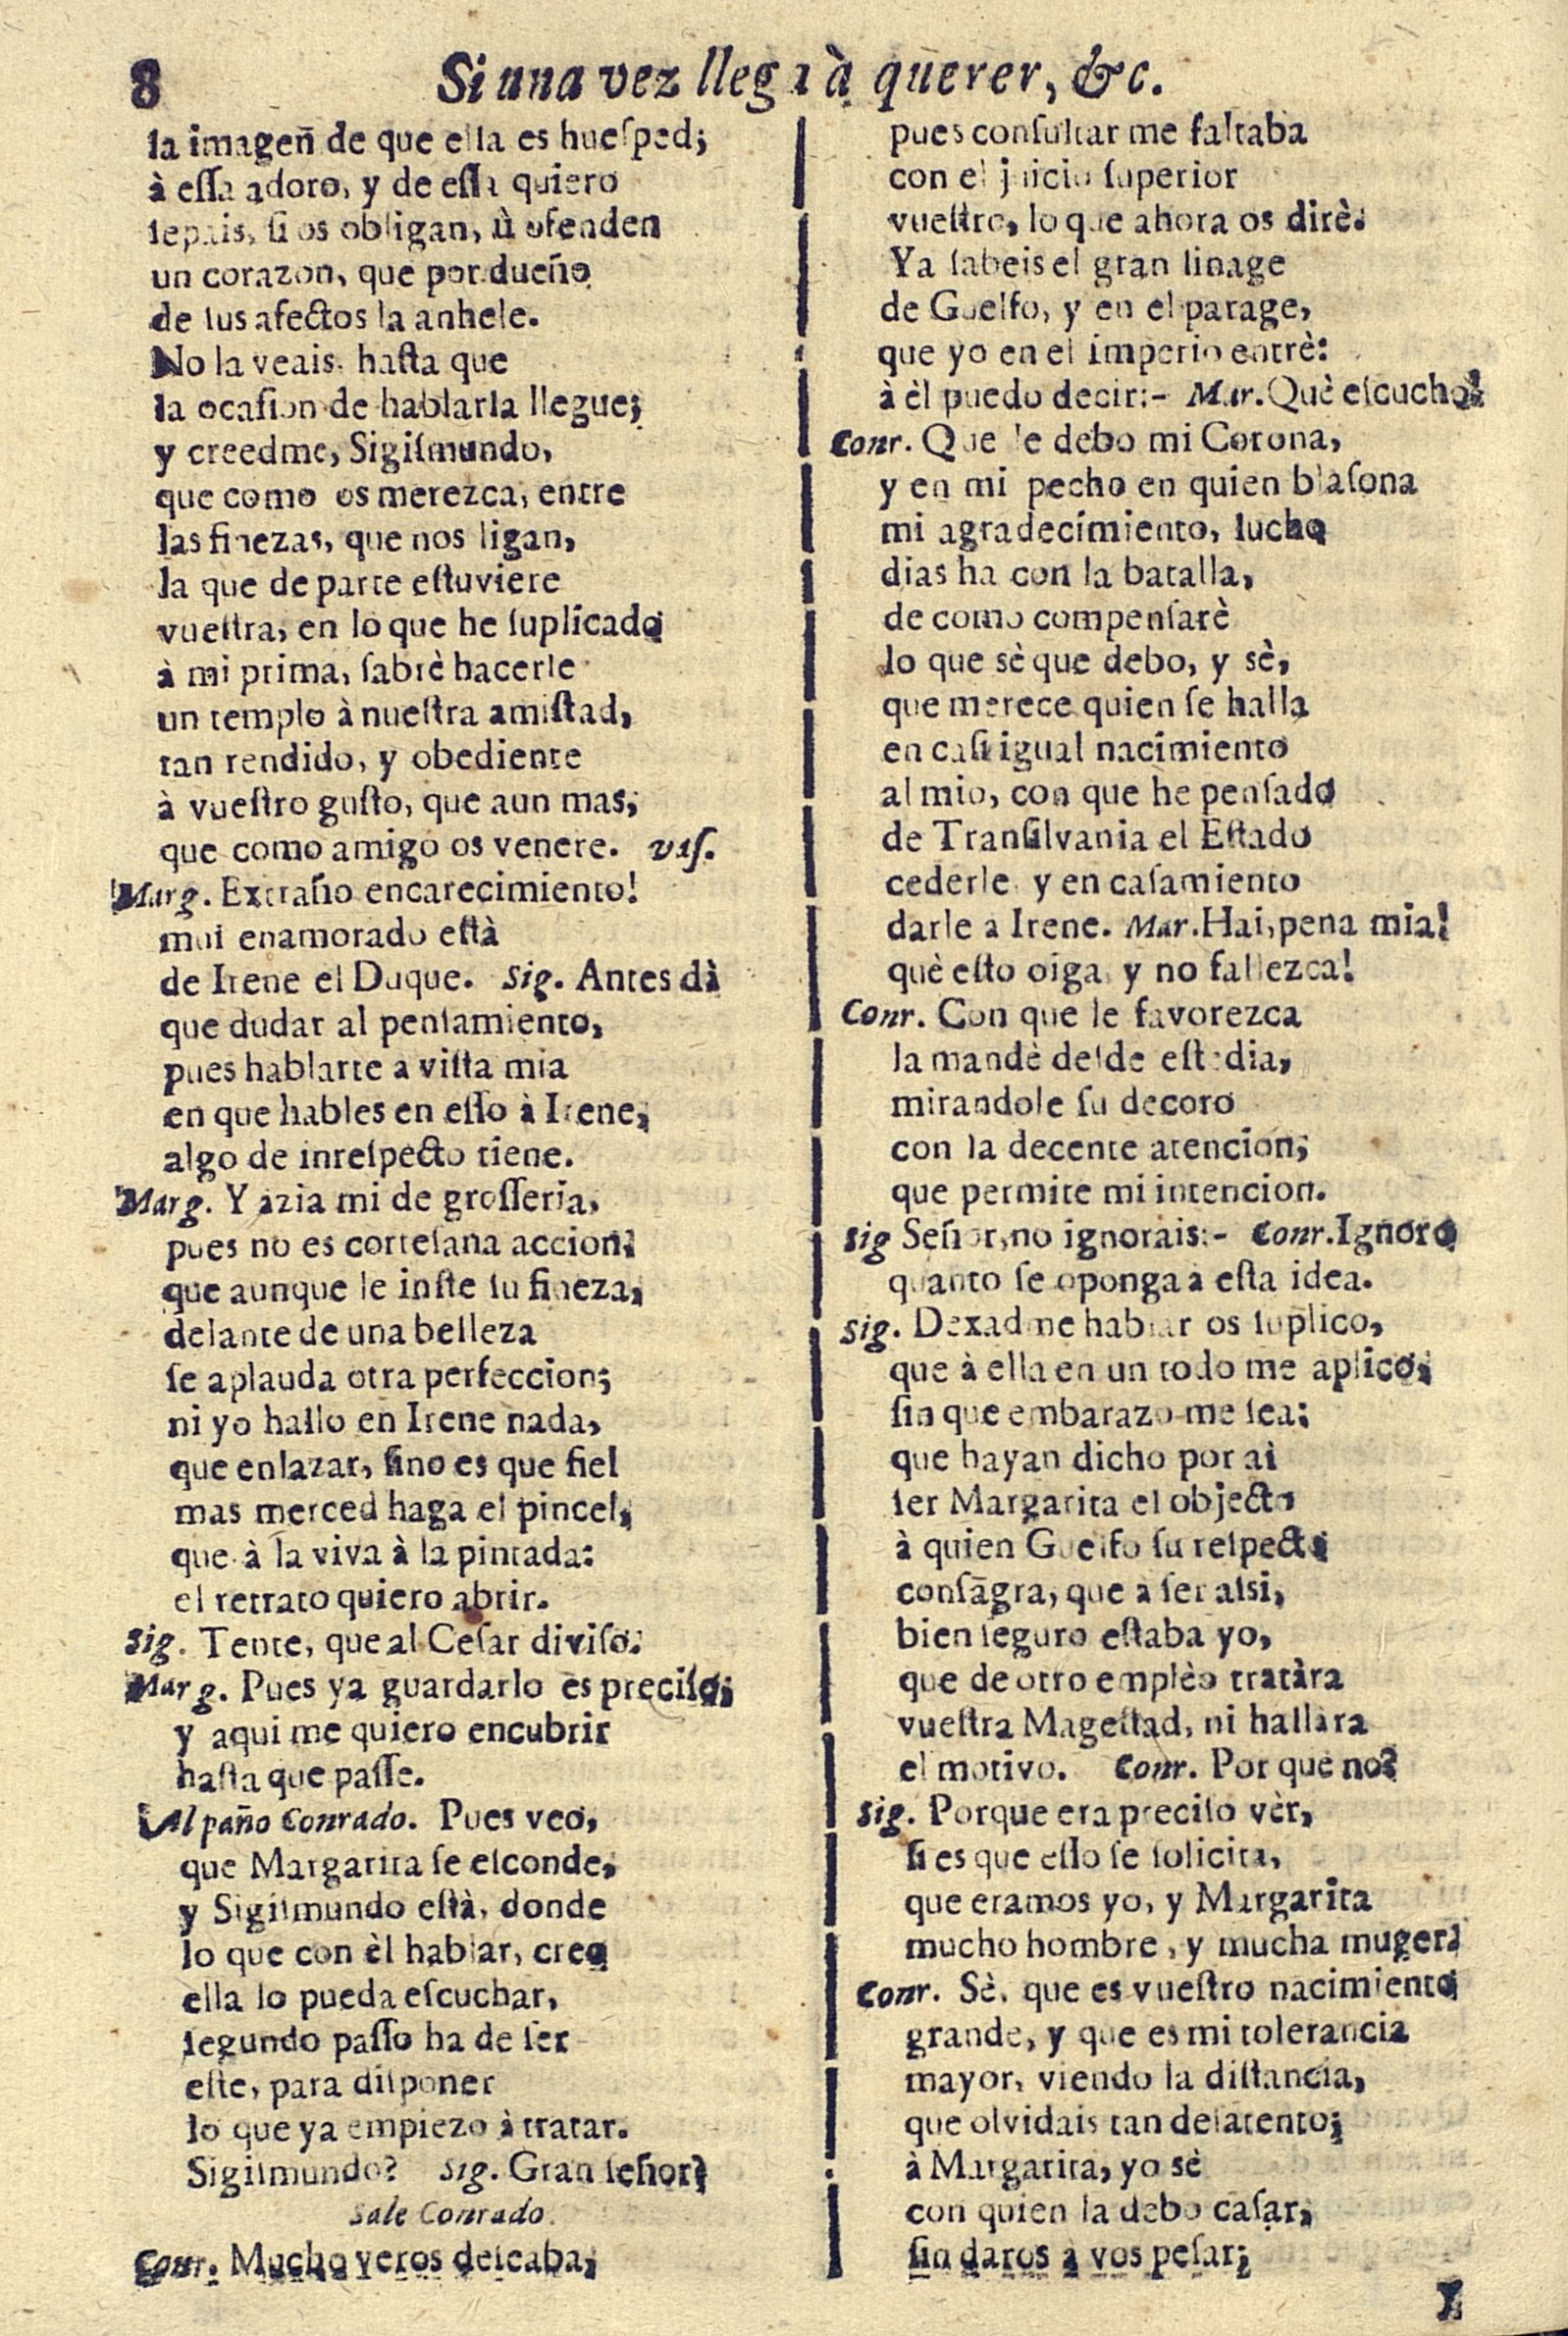 8 Si una vez llega à querer, &c.
la imageñ de que ella es huesped;
à essa adoro, y de essa quiero
sepais, si os obligan, ù ofenden
un corazon, que por dueño
de sus afectos la anhele.
No la veais, hasta que
la ocasion de hablarla llegue;
y creedme, Sigismundo,
que como os merezca, entre
las finezas, que nos ligan,
la que de parte estuviere
vuestra, en lo que he suplicado
à mi prima, sabrè hacerle
un templo à nuestra amistad,
tan rendido, y obediente
à vuestro gusto, que aun mas,
que como amigo os venere. vas.
Marg. Extraño encarecimiento!
mui enamorado està
de Irene el Duque. Sig. Antes dà
que dudar al pensamiento,
pues hablarte a vista mia
en que hables en esso à Irene,
algo de inrespecto tiene.
Marg. Y àzia mi de grosseria,
pues no es cortesana accion,
que aunque le inste su fineza,
delante de una belleza
se aplauda otra perfeccion;
ni yo hallo en Irene nada,
que enlazar, sino es que fiel
mas merced haga el pincel,
que à la viva à la pintada:
el retrato quiero abrir.
Sig. Tente, que al Cesar diviso.
Marg. Pues ya guardarlo es preciso;
y aqui me quiero encubrir
hasta que passe.
Al paño Conrado. Pues veo,
que Margarita se esconde,
y Sigismundo està, donde
lo que con èl hablar, creo
ella lo pueda escuchar,
segundo passo ha de ser
este, para disponer
lo que ya empiezo à tratar.
Sigismundo? Sig. Gran señor?
Sale Conrado.
Conr. Mucho veros deseaba,
pues consultar me faltaba
con el juicio superior
vuestro, lo que ahora os dirè.
Ya sabeis el gran linage
de Guelfo, y en el parage,
que yo en el imperio entrè:
à èl puedo decir:- Mar. Què escucho!
Conr. Que le debo mi Corona,
y en mi pecho en quien blasona
mi agradecimiento, lucho
dias ha con la batalla,
de como compensarè
lo que sè que debo, y sè,
que merece quien se halla
en casi igual nacimiento
al mio, con que he pensado
de Transilvania el Estado
cederle, y en casamiento
darle a Irene. Mar. Hai, pena mia!
què esto oiga, y no fallezca!
Conr. Con que le favorezca
la mandè desde este dia,
mirandole su decoro
con la decente atencion;
que permite mi intencion.
Sig Señor, no ignorais:- Conr. Ignoro
quanto se oponga à esta idea.
Sig. Dexadme hablar os suplico,
que à ella en un todo me aplico,
sin que embarazo me sea;
que hayan dicho por aì
ser Margarita el objecto
à quien Guelfo su respecto
consāgra, que à ser assi,
bien seguro estaba yo,
que de otro emplèo tratàra
vuestra Magestad, ni hallàra
el motivo. Conr. Por què no?
Sig. Porque era preciso vèr,
si es que esso se solicita,
que eramos yo, y Margarita
mucho hombre, y mucha muger.
Conr. Sè, que es vuestro nacimiento
grande, y que es mi tolerancia
mayor, viendo la distancia,
que olvidais tan desatento;
à Margarita, yo sè
con quien la debo casar,
sin daros à vos pesar;